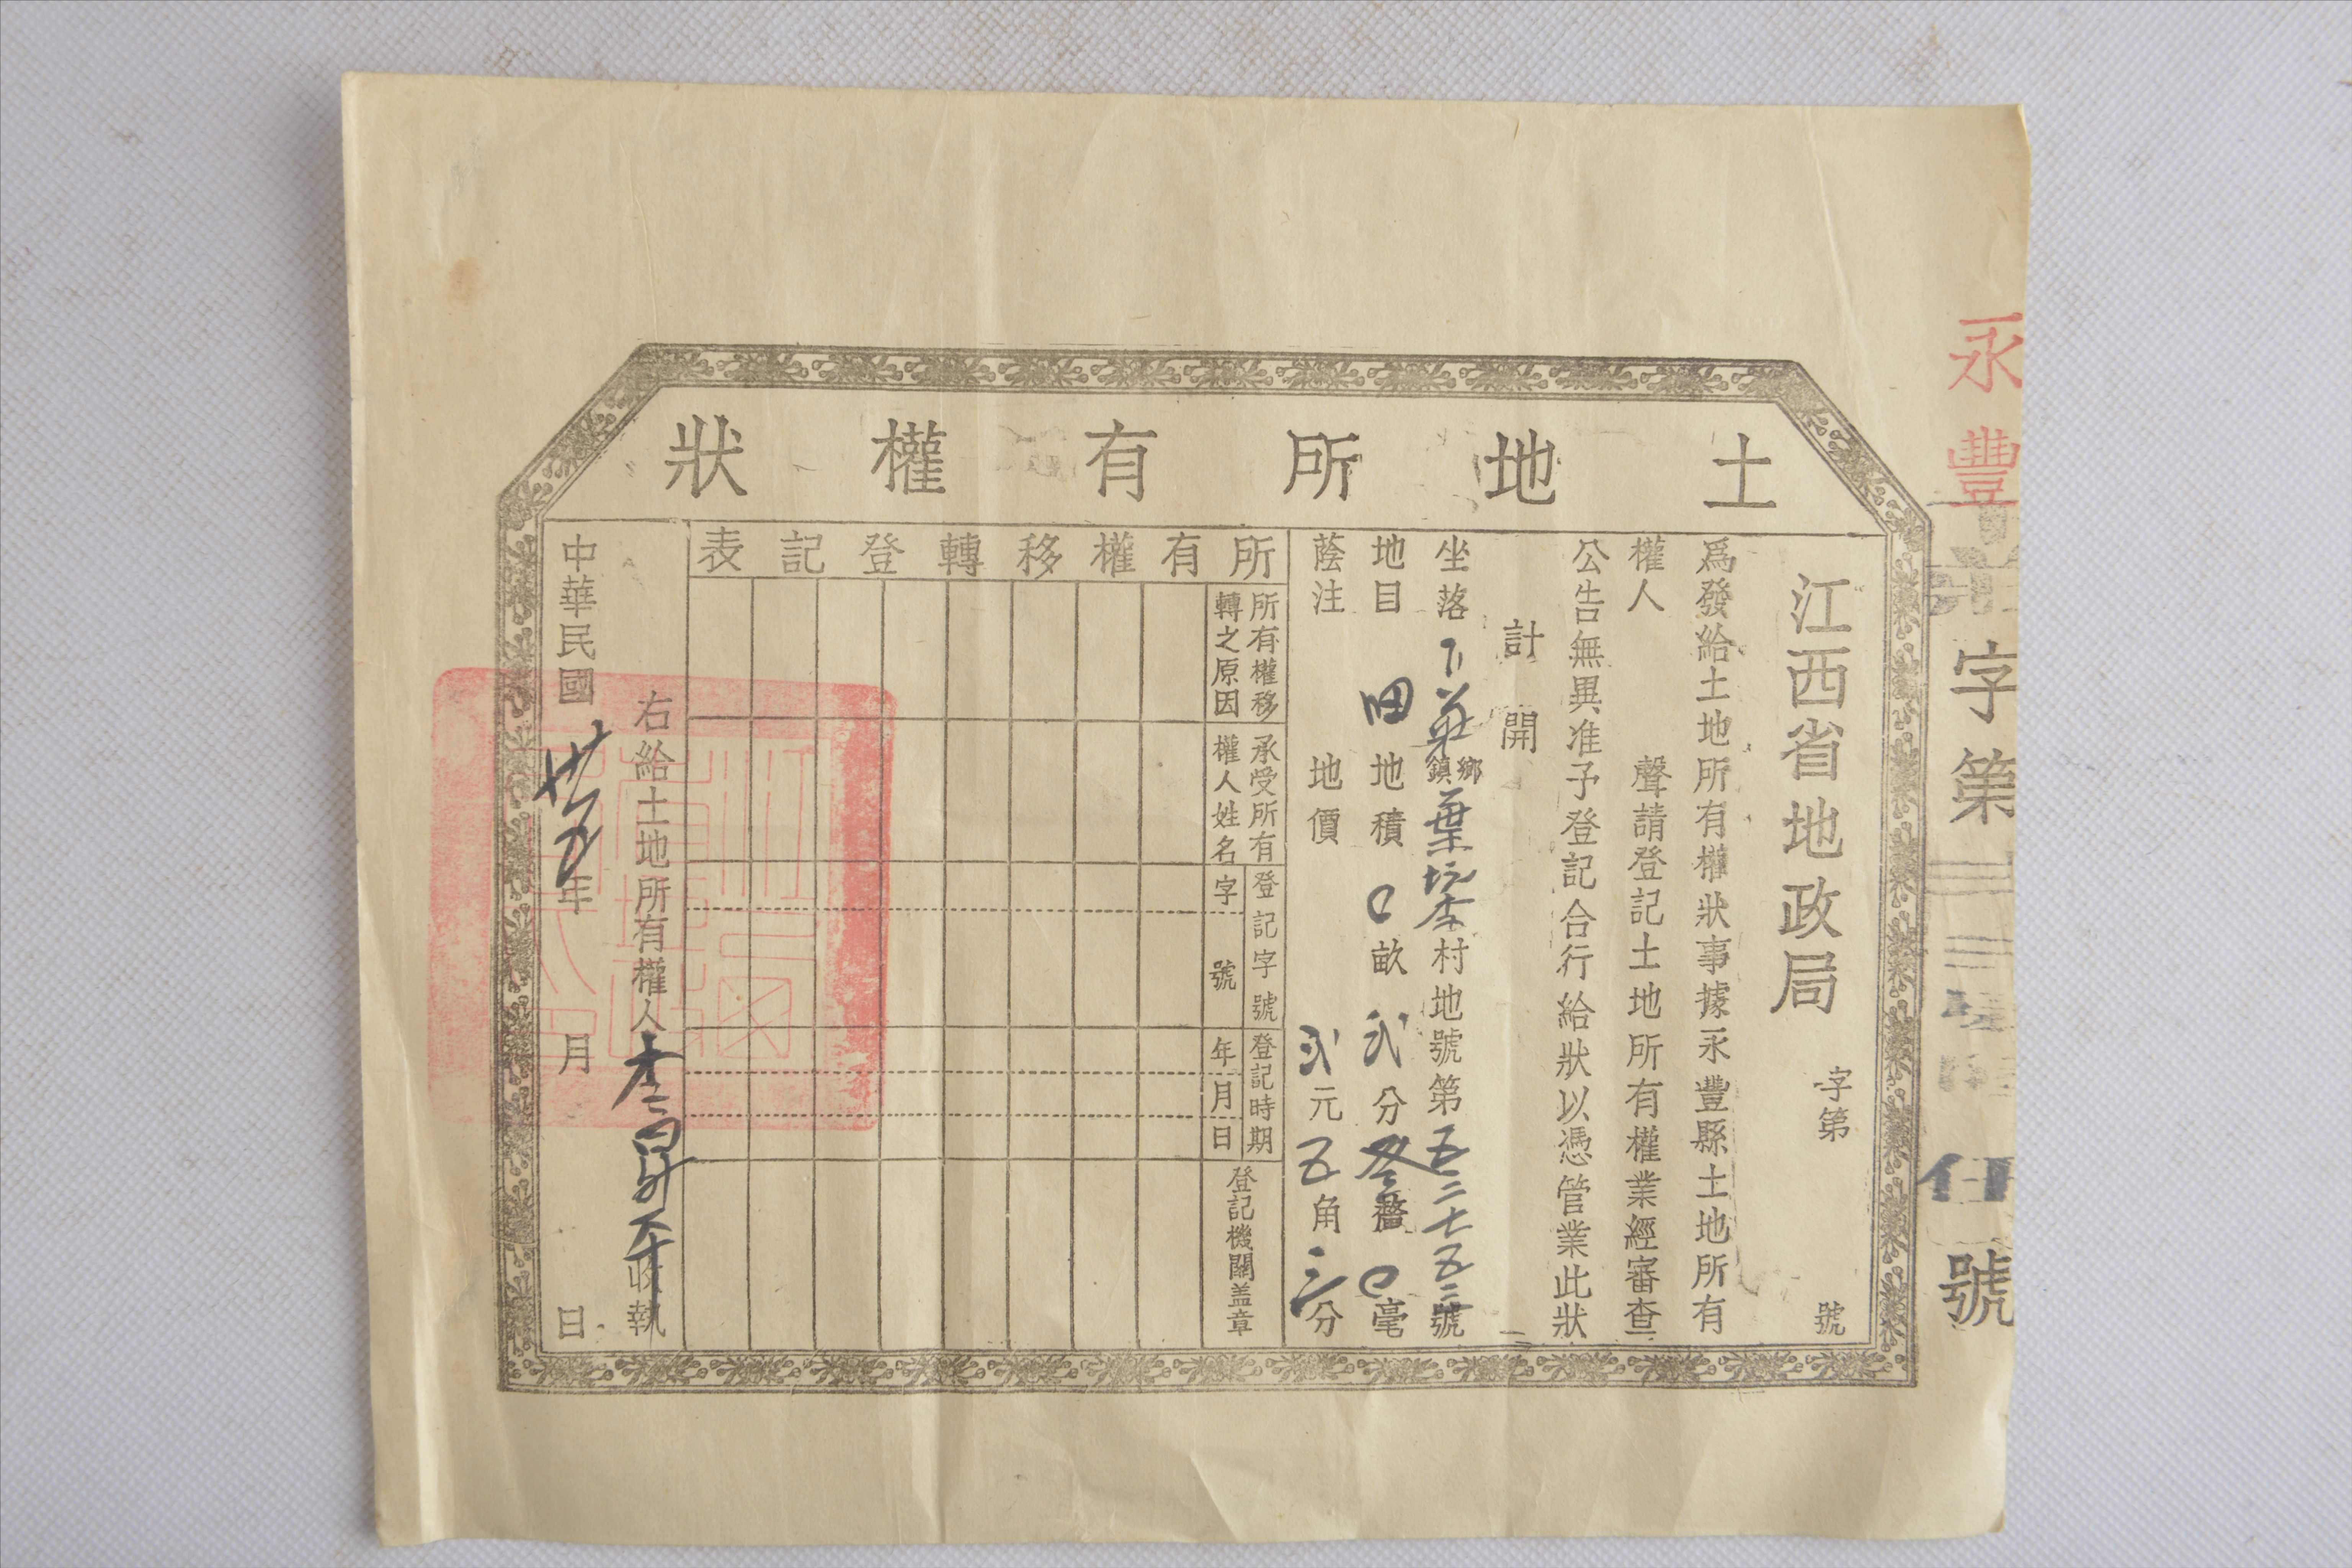 永豐 字第 號
土地所有權狀
江西省地政局 字第 號
爲發給土地所有權狀事據永豐縣土地所有
權人 聲請登記土地所有權業經審查
公告無異准予登記合行給狀以憑管業此狀
計開
坐落 鄉鎮葉坑 村地號第五二七五三號
地目田地積0畝弍分叄釐0毫
蔭注 地價 弍元五角三分
所有權移轉登記表
所有權移轉之原因
承受所有權人姓名
登記字號
字 號
登記時期
年月日
登記機關盖章
右給土地所有權人 收執
中華民國卅五年 月 日